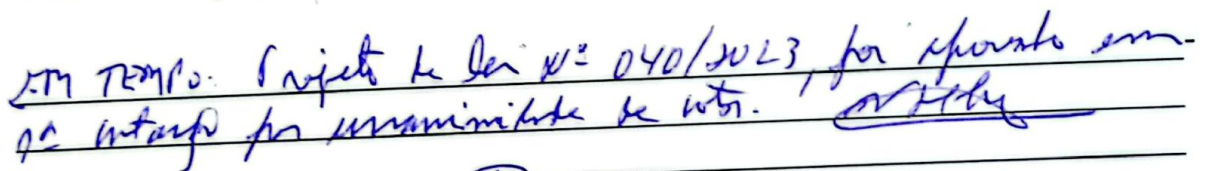 EM TEMPO: Projeto de Lei Nº 040/2023, foi aprovado em
1ª votação por unanimidade de votos.